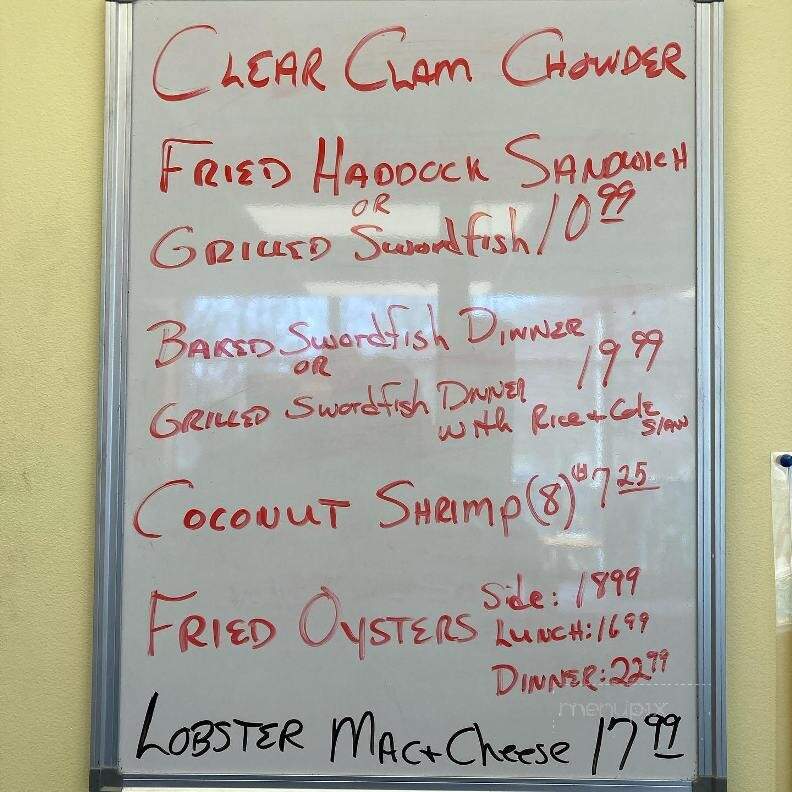 CLEAR CLAM CHOWDER
FRIED HADDOCK SANDWICH
OR
GRILLED Swordfish 10 99
BAKED Swordfish DINNER
OR
19 99
GRILLED Swordfish DINNER
with Rice + Cole
Slaw
COCONUT SHRIMP (8) 7 25
FRIED OYSTERS
Side: 1899
LUNCH: 1699
DINNER: 22 99
LOBSTER MAC + Cheese 17 99
menupix